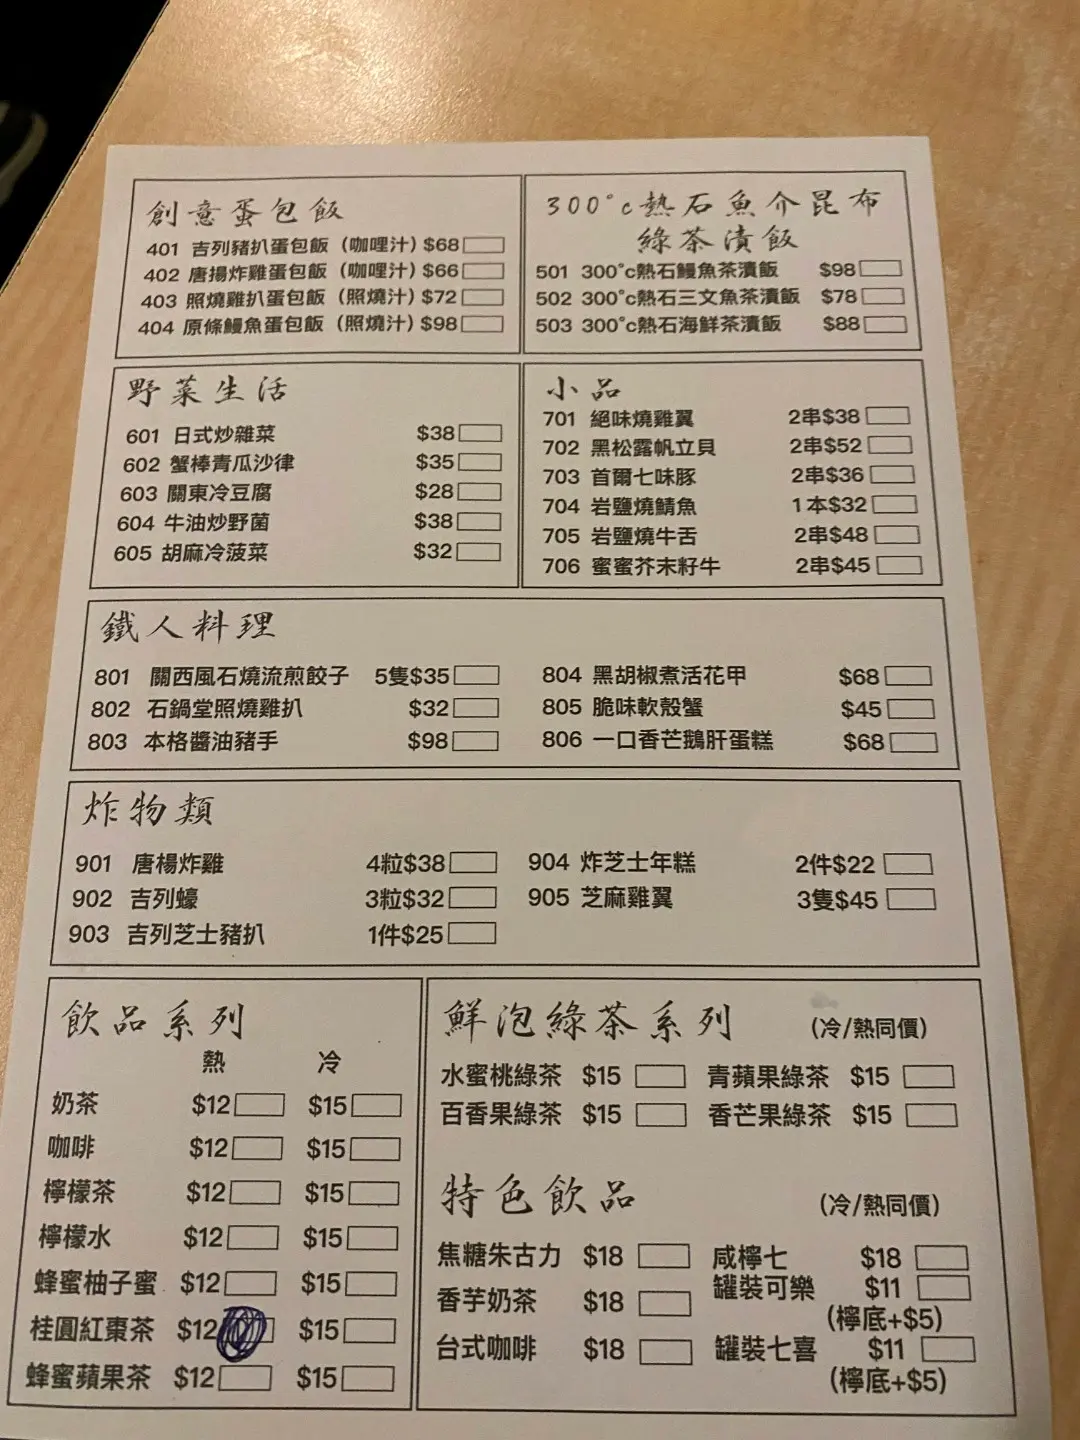 創意蛋包飯
401 吉列豬扒蛋包飯（咖哩汁）$68
402 唐揚炸雞蛋包飯（咖哩汁）$66
403 照燒雞扒蛋包飯（照燒汁）$72
404 原條鰻魚蛋包飯（照燒汁）$98
300°c熱石魚介昆布
綠茶漬飯
501 300°c熱石鰻魚茶漬飯 $98
502 300°c熱石三文魚茶漬飯 $78
503 300°c熱石海鮮茶漬飯 $88
野菜生活
601 日式炒雜菜 $38
602 蟹棒青瓜沙律 $35
603 關東冷豆腐 $28
604 牛油炒野菌 $38
605 胡麻冷菠菜 $32
小品
701 絕味燒雞翼 2串$38
702 黑松露帆立貝 2串$52
703 首爾七味豚 2串$36
704 岩鹽燒鯖魚 1本$32
705 岩鹽燒牛舌 2串$48
706 蜜蜜芥末籽牛 2串$45
鐵人料理
801 關西風石燒流煎餃子 5隻$35
802 石鍋堂照燒雞扒 $32
803 本格醬油豬手 $98
804 黑胡椒煮活花甲 $68
805 脆味軟殼蟹 $45
806 一口香芒鵝肝蛋糕 $68
炸物類
901 唐楊炸雞 4粒$38
902 吉列蠔 3粒$32
903 吉列芝士豬扒 1件$25
904 炸芝士年糕 2件$22
905 芝麻雞翼 3隻$45
飲品系列
熱 冷
奶茶 $12 $15
咖啡 $12 $15
檸檬茶 $12 $15
檸檬水 $12 $15
蜂蜜柚子蜜 $12 $15
桂圓紅棗茶 $12 $15
蜂蜜蘋果茶 $12 $15
鮮泡綠茶系列 (冷/熱同價)
水蜜桃綠茶 $15 青蘋果綠茶 $15
百香果綠茶 $15 香芒果綠茶 $15
特色飲品 (冷/熱同價)
焦糖朱古力 $18 咸檸七 $18
香芋奶茶 $18 罐裝可樂 $11
(檸底+$5)
台式咖啡 $18 罐裝七喜 $11
(檸底+$5)